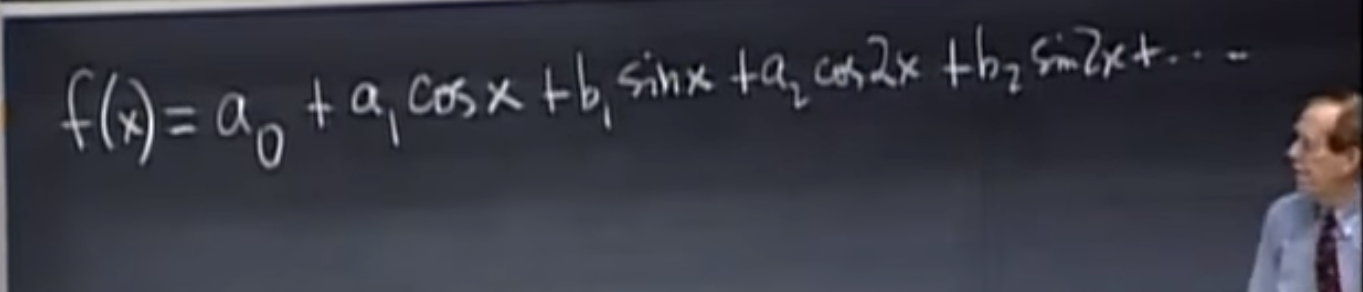 f(x) = a₀ + a₁ cos x + b₁ sin x + a₂ cos 2x + b₂ sin 2x + ...